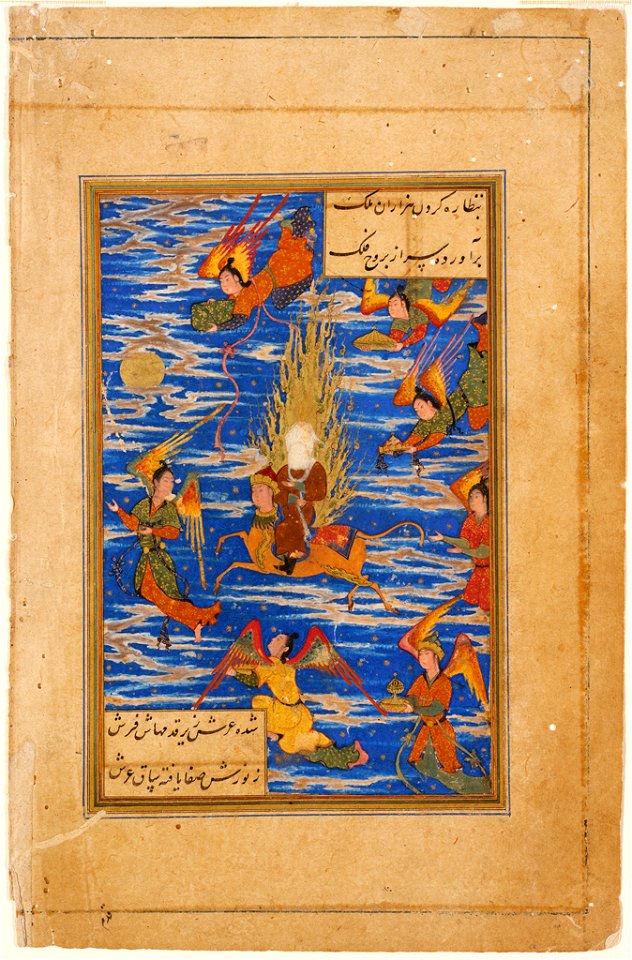 بنظاره کردون هزاران ملک
برآورده سر از بروج فلک
شده عرش زیر قدمهاش فرش
ز نورش صفا یافته ساق عرش